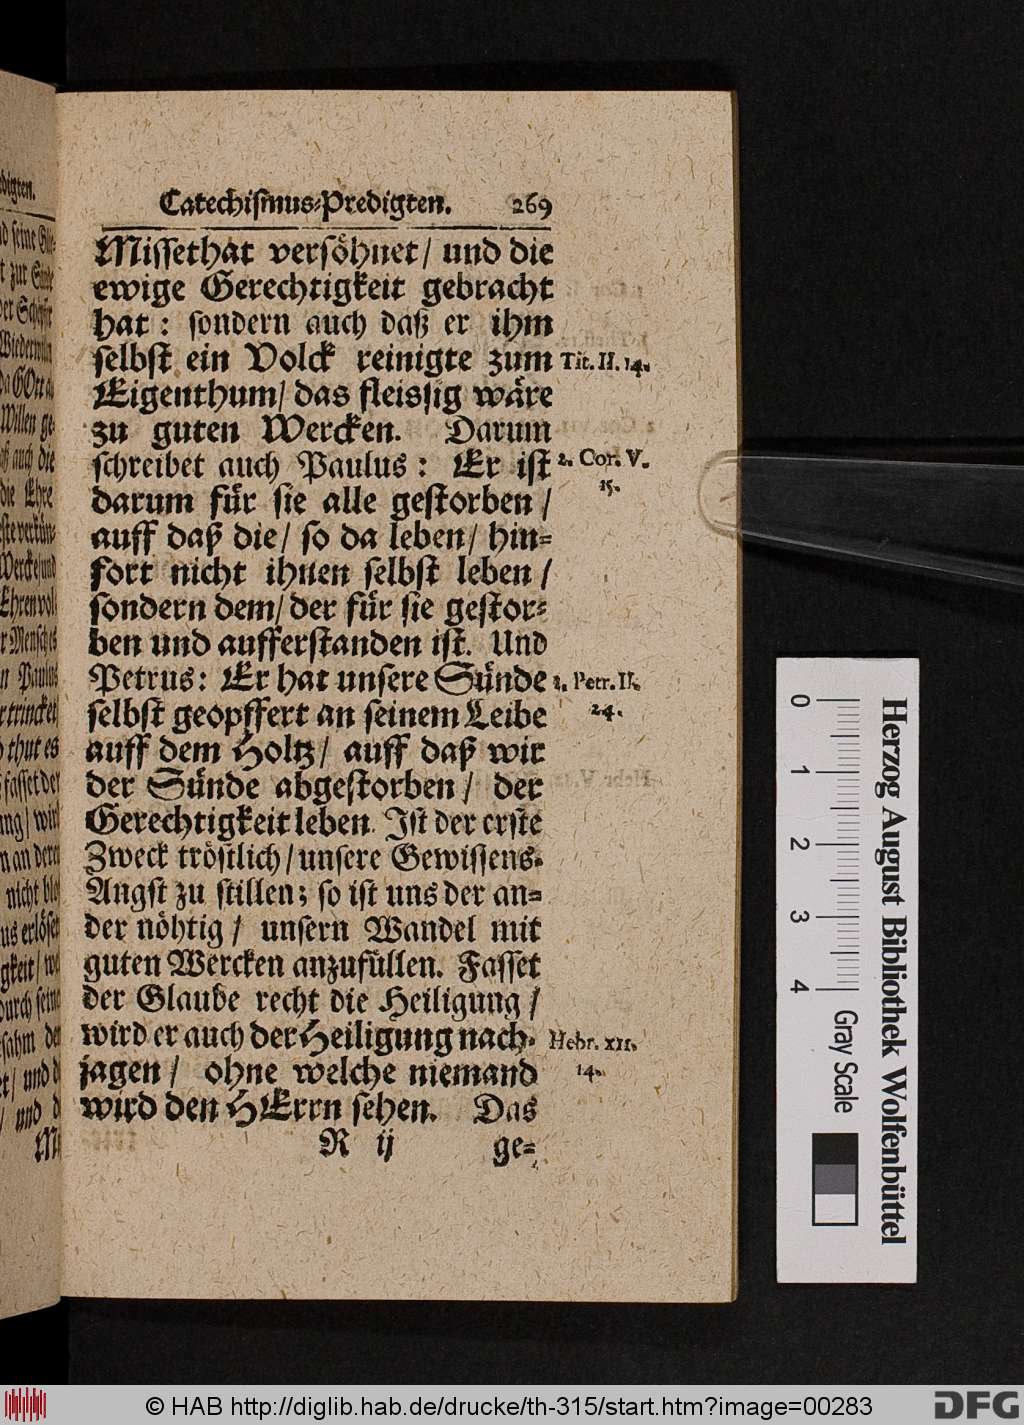 Catechiſmus-Predigten. 269
Miſſethat verſöhnet / und die
ewige Gerechtigkeit gebracht
hat : ſondern auch daß er ihm
ſelbſt ein Volck reinigte zum
Tit. II. 14.
Eigenthum / das fleiſſig wåre
zu guten Wercken. Darum
ſchreibet auch Paulus : Er iſt
2. Cor. V.
15.
darum für ſie alle geſtorben /
auff daß die / ſo da leben / hin=
fort nicht ihnen ſelbſt leben /
ſondern dem / der für ſie geſtor=
ben und aufferſtanden iſt. Und
Petrus : Er hat unſere Sünde
1. Petr. II.
24.
ſelbſt geopffert an ſeinem Leibe
auff dem Holtz / auff daß wir
der Sünde abgeſtorben / der
Gerechtigkeit leben. Iſt der erſte
Zweck tröſtlich / unſere Gewiſſens-
Angſt zu ſtillen ; ſo iſt uns der an=
der nöhtig / unſern Wandel mit
guten Wercken anzufüllen. Faſſet
der Glaube recht die Heiligung /
wird er auch der Heiligung nach-
Hebr. XII.
14.
jagen / ohne welche niemand
wird den HErrn ſehen. Das
R ij ge=
Herzog August Bibliothek Wolfenbüttel
0 1 2 3 4 Gray Scale
© HAB http://diglib.hab.de/drucke/th-315/start.htm?image=00283
DFG